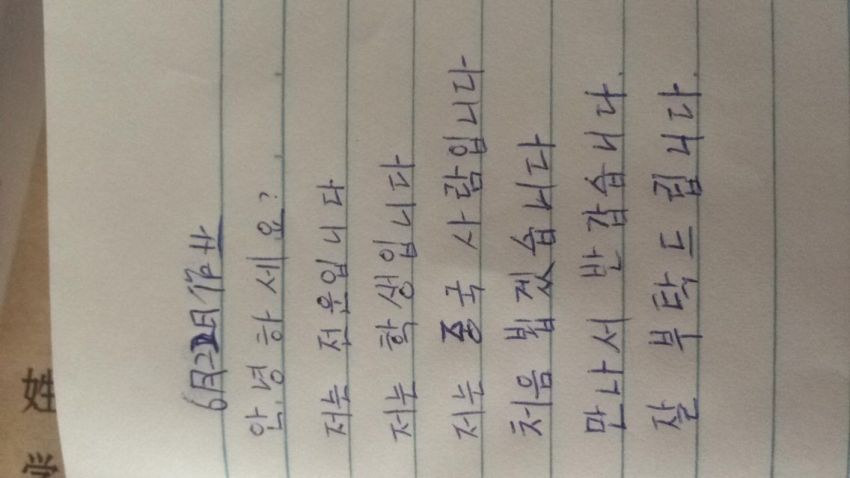 6月22日作业
안녕하세요?
저는 전운입니다
저는 학생입니다
저는 중국 사람입니다
처음 뵙겠습니다
만나서 반갑습니다.
잘 부탁드립니다.
姓
学